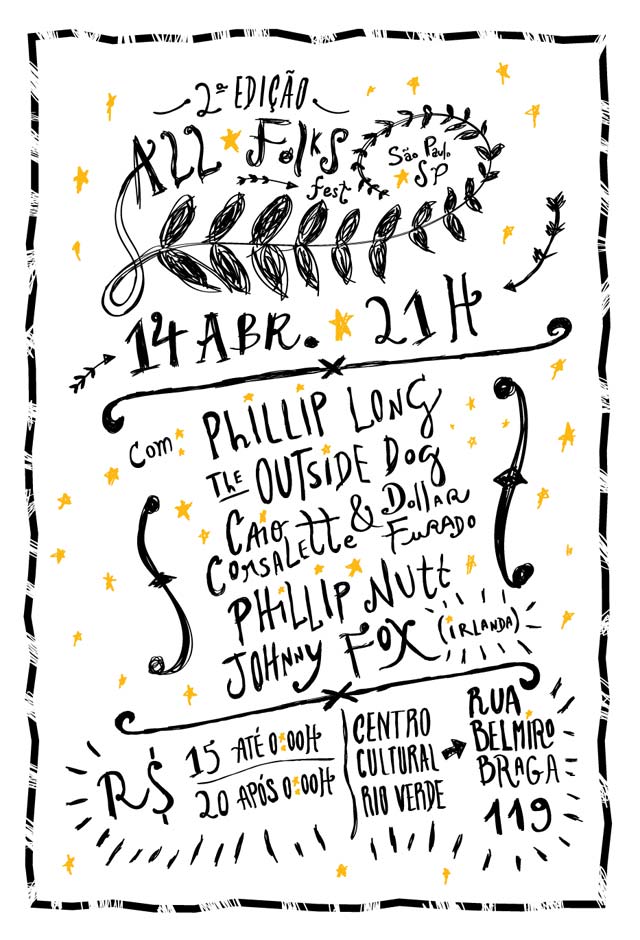 2ª EDIÇÃO
ALL FOLKS
fest
São Paulo
SP
14 ABR. 21H
Com:
PHILLIP LONG
THE OUTSIDE DOG
CAIO CORSALETTE & DOLLAR FURADO
PHILLIP NUTT
JOHNNY FOX (IRLANDA)
R$
15 ATÉ 0:00H
20 APÓS 0:00H
CENTRO
CULTURAL
RIO VERDE
RUA
BELMIRO
BRAGA
119